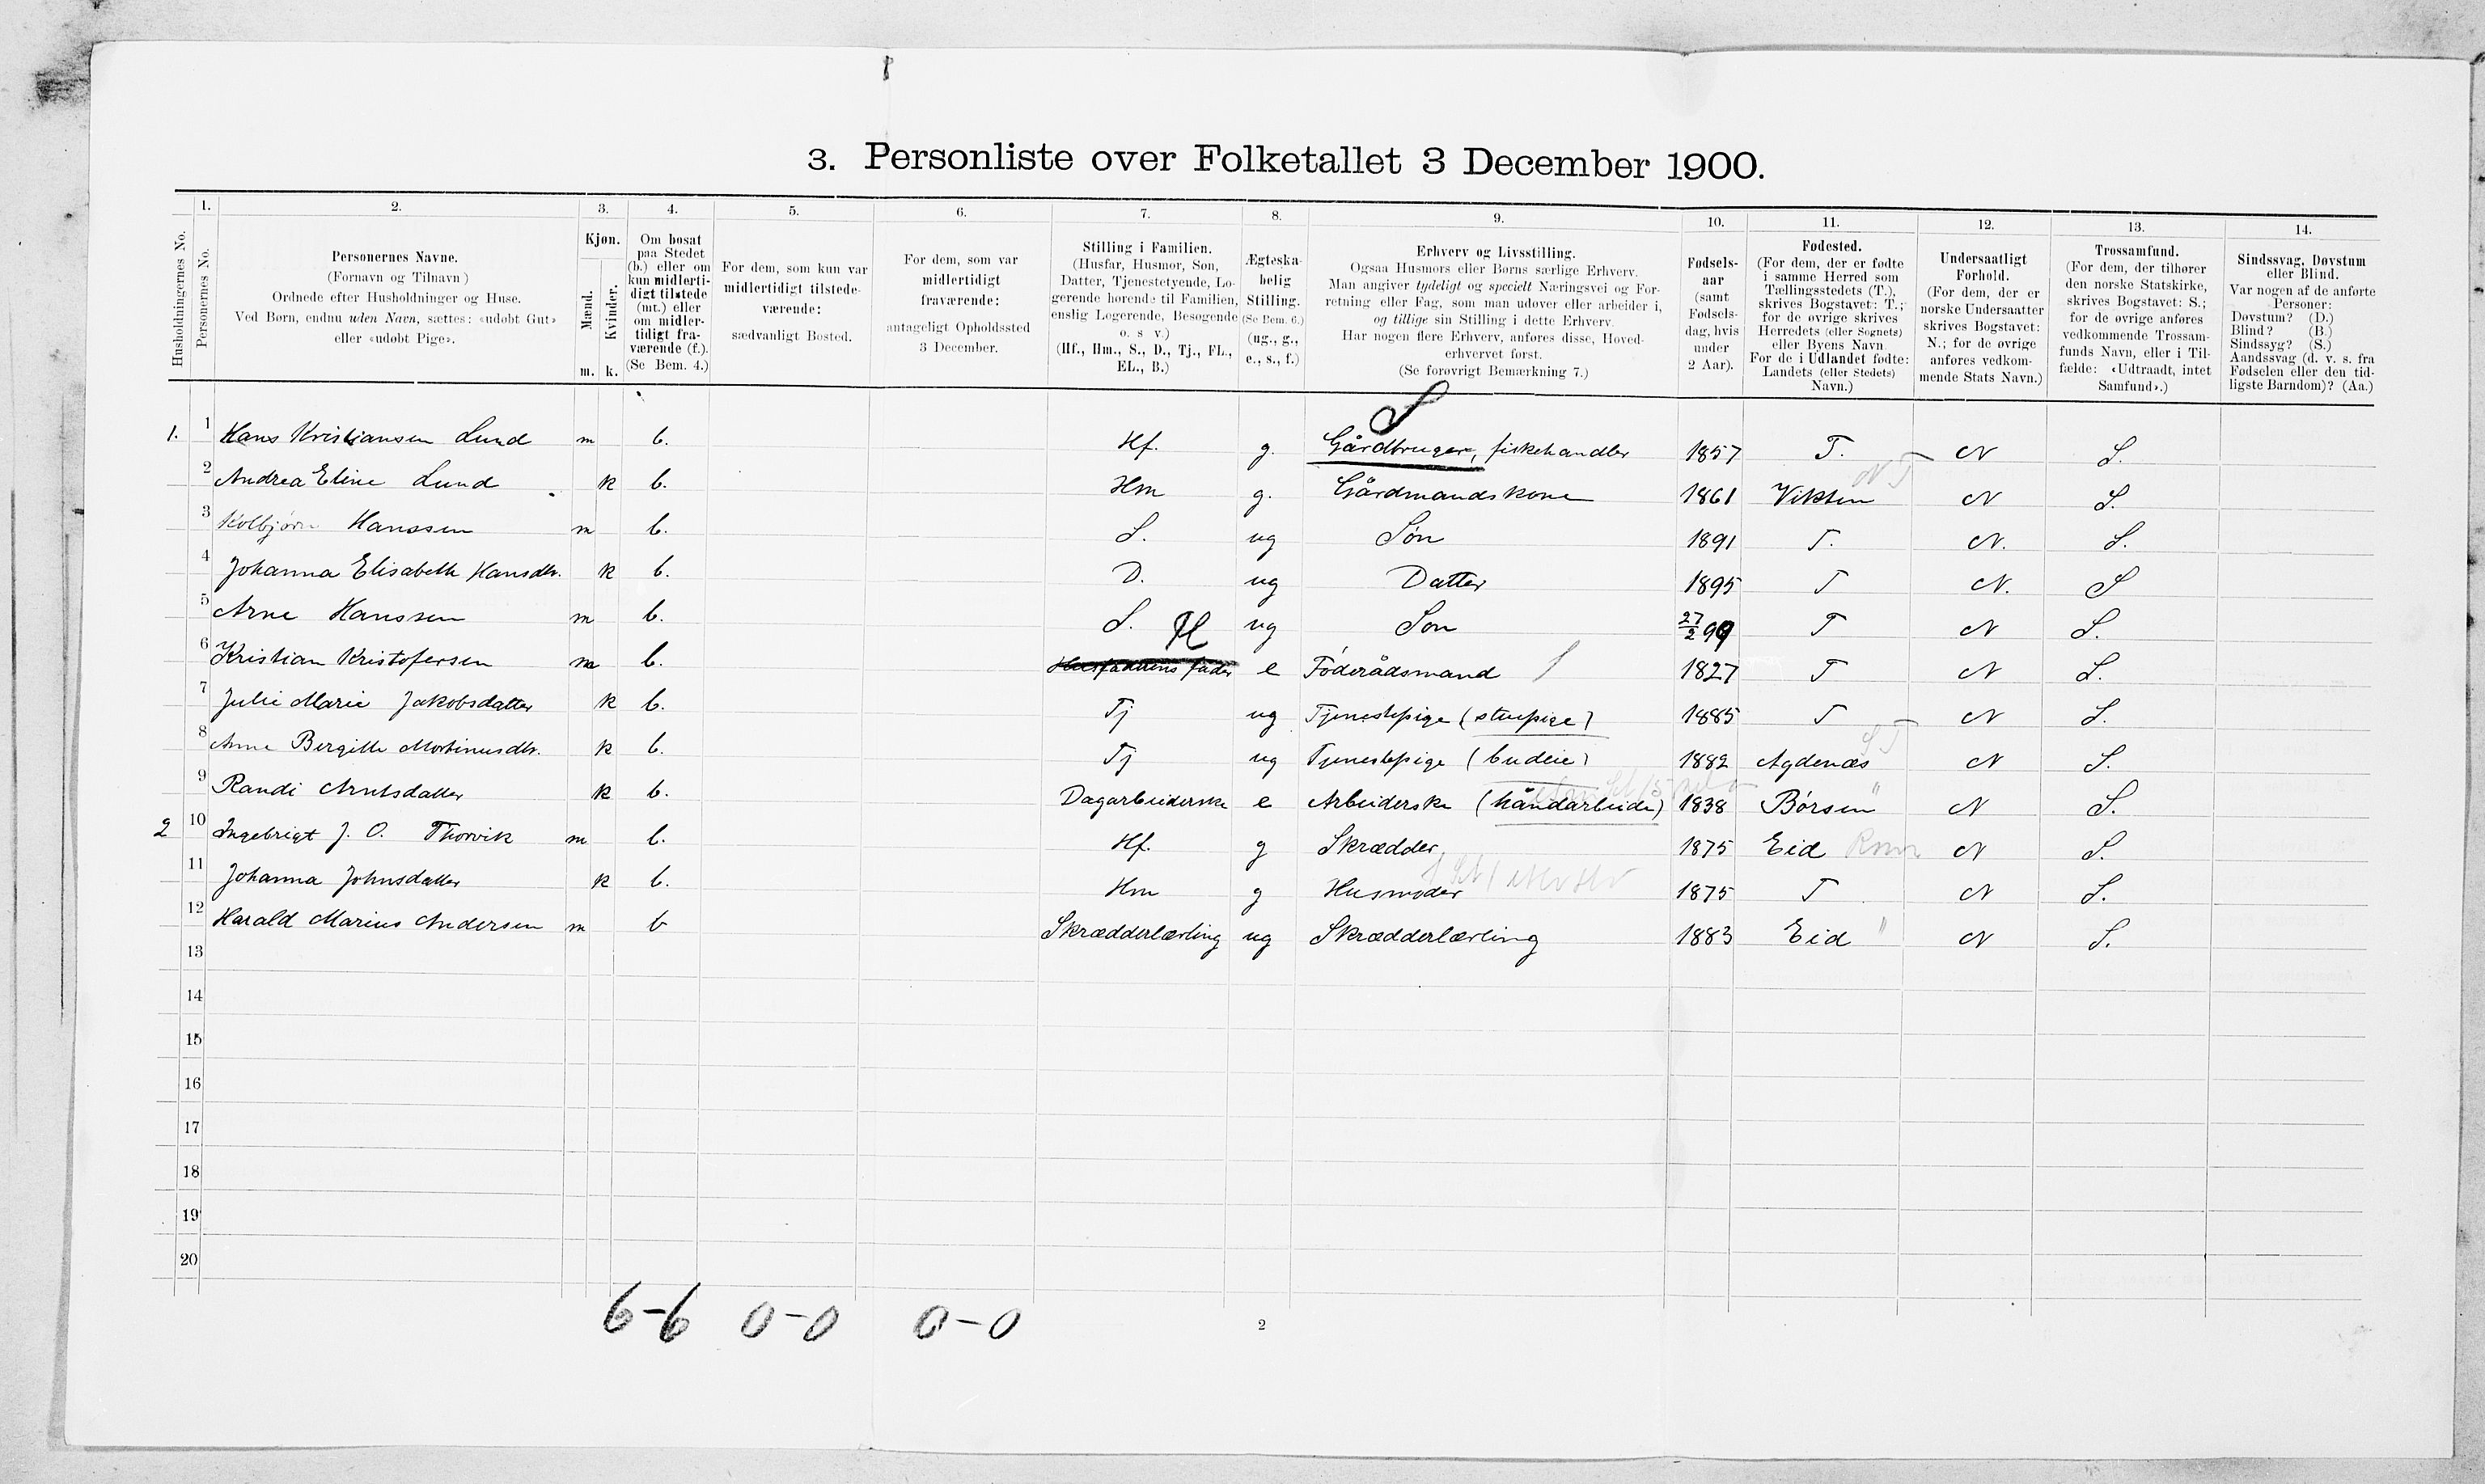 3. Personliste over Folketallet 3 December 1900.
Husholdningernes No.
1.
Personernes No.
2.
Personernes Navne.
(Fornavn og Tilnavn)
Ordnede efter Husholdninger og Huse.
Ved Børn, endnu uden Navn, sættes: «udøbt Gut»
eller «udøbt Pige».
3.
Kjøn.
Mænd.
Kvinder.
m. k.
4.
Om bosat
paa Stedet
(b.) eller om
kun midlerti-
digt tilstede
(mt.) eller
om midler-
tidigt fra-
værende (f.).
(Se Bem. 4.)
5.
For dem, som kun var
midlertidigt tilstede-
værende:
sædvanligt Bosted.
6.
For dem, som var
midlertidigt
fraværende:
antageligt Opholdssted
3 December.
7.
Stilling i Familien.
(Husfar, Husmor, Søn,
Datter, Tjenestetyende, Lo-
gerende hørende til Familien,
enslig Logerende, Besøgende
o. s v.)
(Hf., Hm., S., D., Tj., FL.,
EL., B.)
8.
Ægteska-
belig
Stilling.
(Se Bem. 6.)
(ug., g.,
e., s., f.)
9.
Erhverv og Livsstilling.
Ogsaa Husmors eller Børns særlige Erhverv.
Man angiver tydeligt og specielt Næringsvei og For-
retning eller Fag, som man udøver eller arbeider i,
og tillige sin Stilling i dette Erhverv.
Har nogen flere Erhverv, anføres disse, Hoved-
erhvervet først.
(Se forøvrigt Bemærkning 7.)
10.
Fødsels-
aar
(samt
Fødsels-
dag, hvis
under
2 Aar).
11.
Fødested.
(For dem, der er fødte
i samme Herred som
Tællingsstedets (T.),
skrives Bogstavet: T.;
for de øvrige skrives
Herredets (eller Sognets)
eller Byens Navn.
For de i Udlandet fødte:
Landets (eller Stedets)
Navn.)
12.
Undersaatligt
Forhold.
(For dem, der er
norske Undersaatter
skrives Bogstavet:
N.; for de øvrige
anføres vedkom-
mende Stats Navn.)
13.
Trossamfund.
(For dem, der tilhører
den norske Statskirke,
skrives Bogstavet: S.;
for de øvrige anføres
vedkommende Trossam-
funds Navn, eller i Til-
fælde: «Udtraadt, intet
Samfund».)
14.
Sindssvag, Døvstum
eller Blind.
Var nogen af de anførte
Personer:
Døvstum? (D.)
Blind? (B.)
Sindssyg? (S.)
Aandssvag (d. v. s. fra
Fødselen eller den tid-
ligste Barndom)? (Aa.)
S
1. 1 Hans Kristiansen Lund m b. Hf. g. Gårdbruger, fiskehandler 1857 T. N S.
2 Andrea Eline Lund k b. Hm g. Gårdmandskone 1861 Vikten NT N S.
3 Kolbjørn Hanssen m b. S. ug Søn 1891 T. N. S.
4 Johanna Elisabeth Hansdtr. k b. D. ug Datter 1895 T N. S
5 Arne Hanssen m b. S. ug Søn 27/2 99 T N S.
6 Kristian Kristofersen m b. Husfaderens fader e Føderådsmand 1827 T N S.
7 Julie Marie Jakobsdatter k b. Tj ug Tjenestepige (stuepige) 1885 T N S.
8 Anne Bergitte Martinusdtr. k b. Tj ug Tjenestepige (budeie) 1882 Agdenæs ST N S.
9 Randi Arntsdatter k b. Dagarbeiderske e Arbeiderske (håndarbeide) 1838 Børsen " N S.
2 10 Ingebrigt J. O. Thorvik m b. Hf. g Skrædder 1875 Eid Rmsd N S.
11 Johanna Johnsdatter k b. Hm g Husmoder 1875 T N S.
12 Harald Marius Andersen m b Skrædderlærling ug Skrædderlærling 1883 Eid " N S.
13
14
15
16
17
18
19
20
6-6 0-0 0-0
2